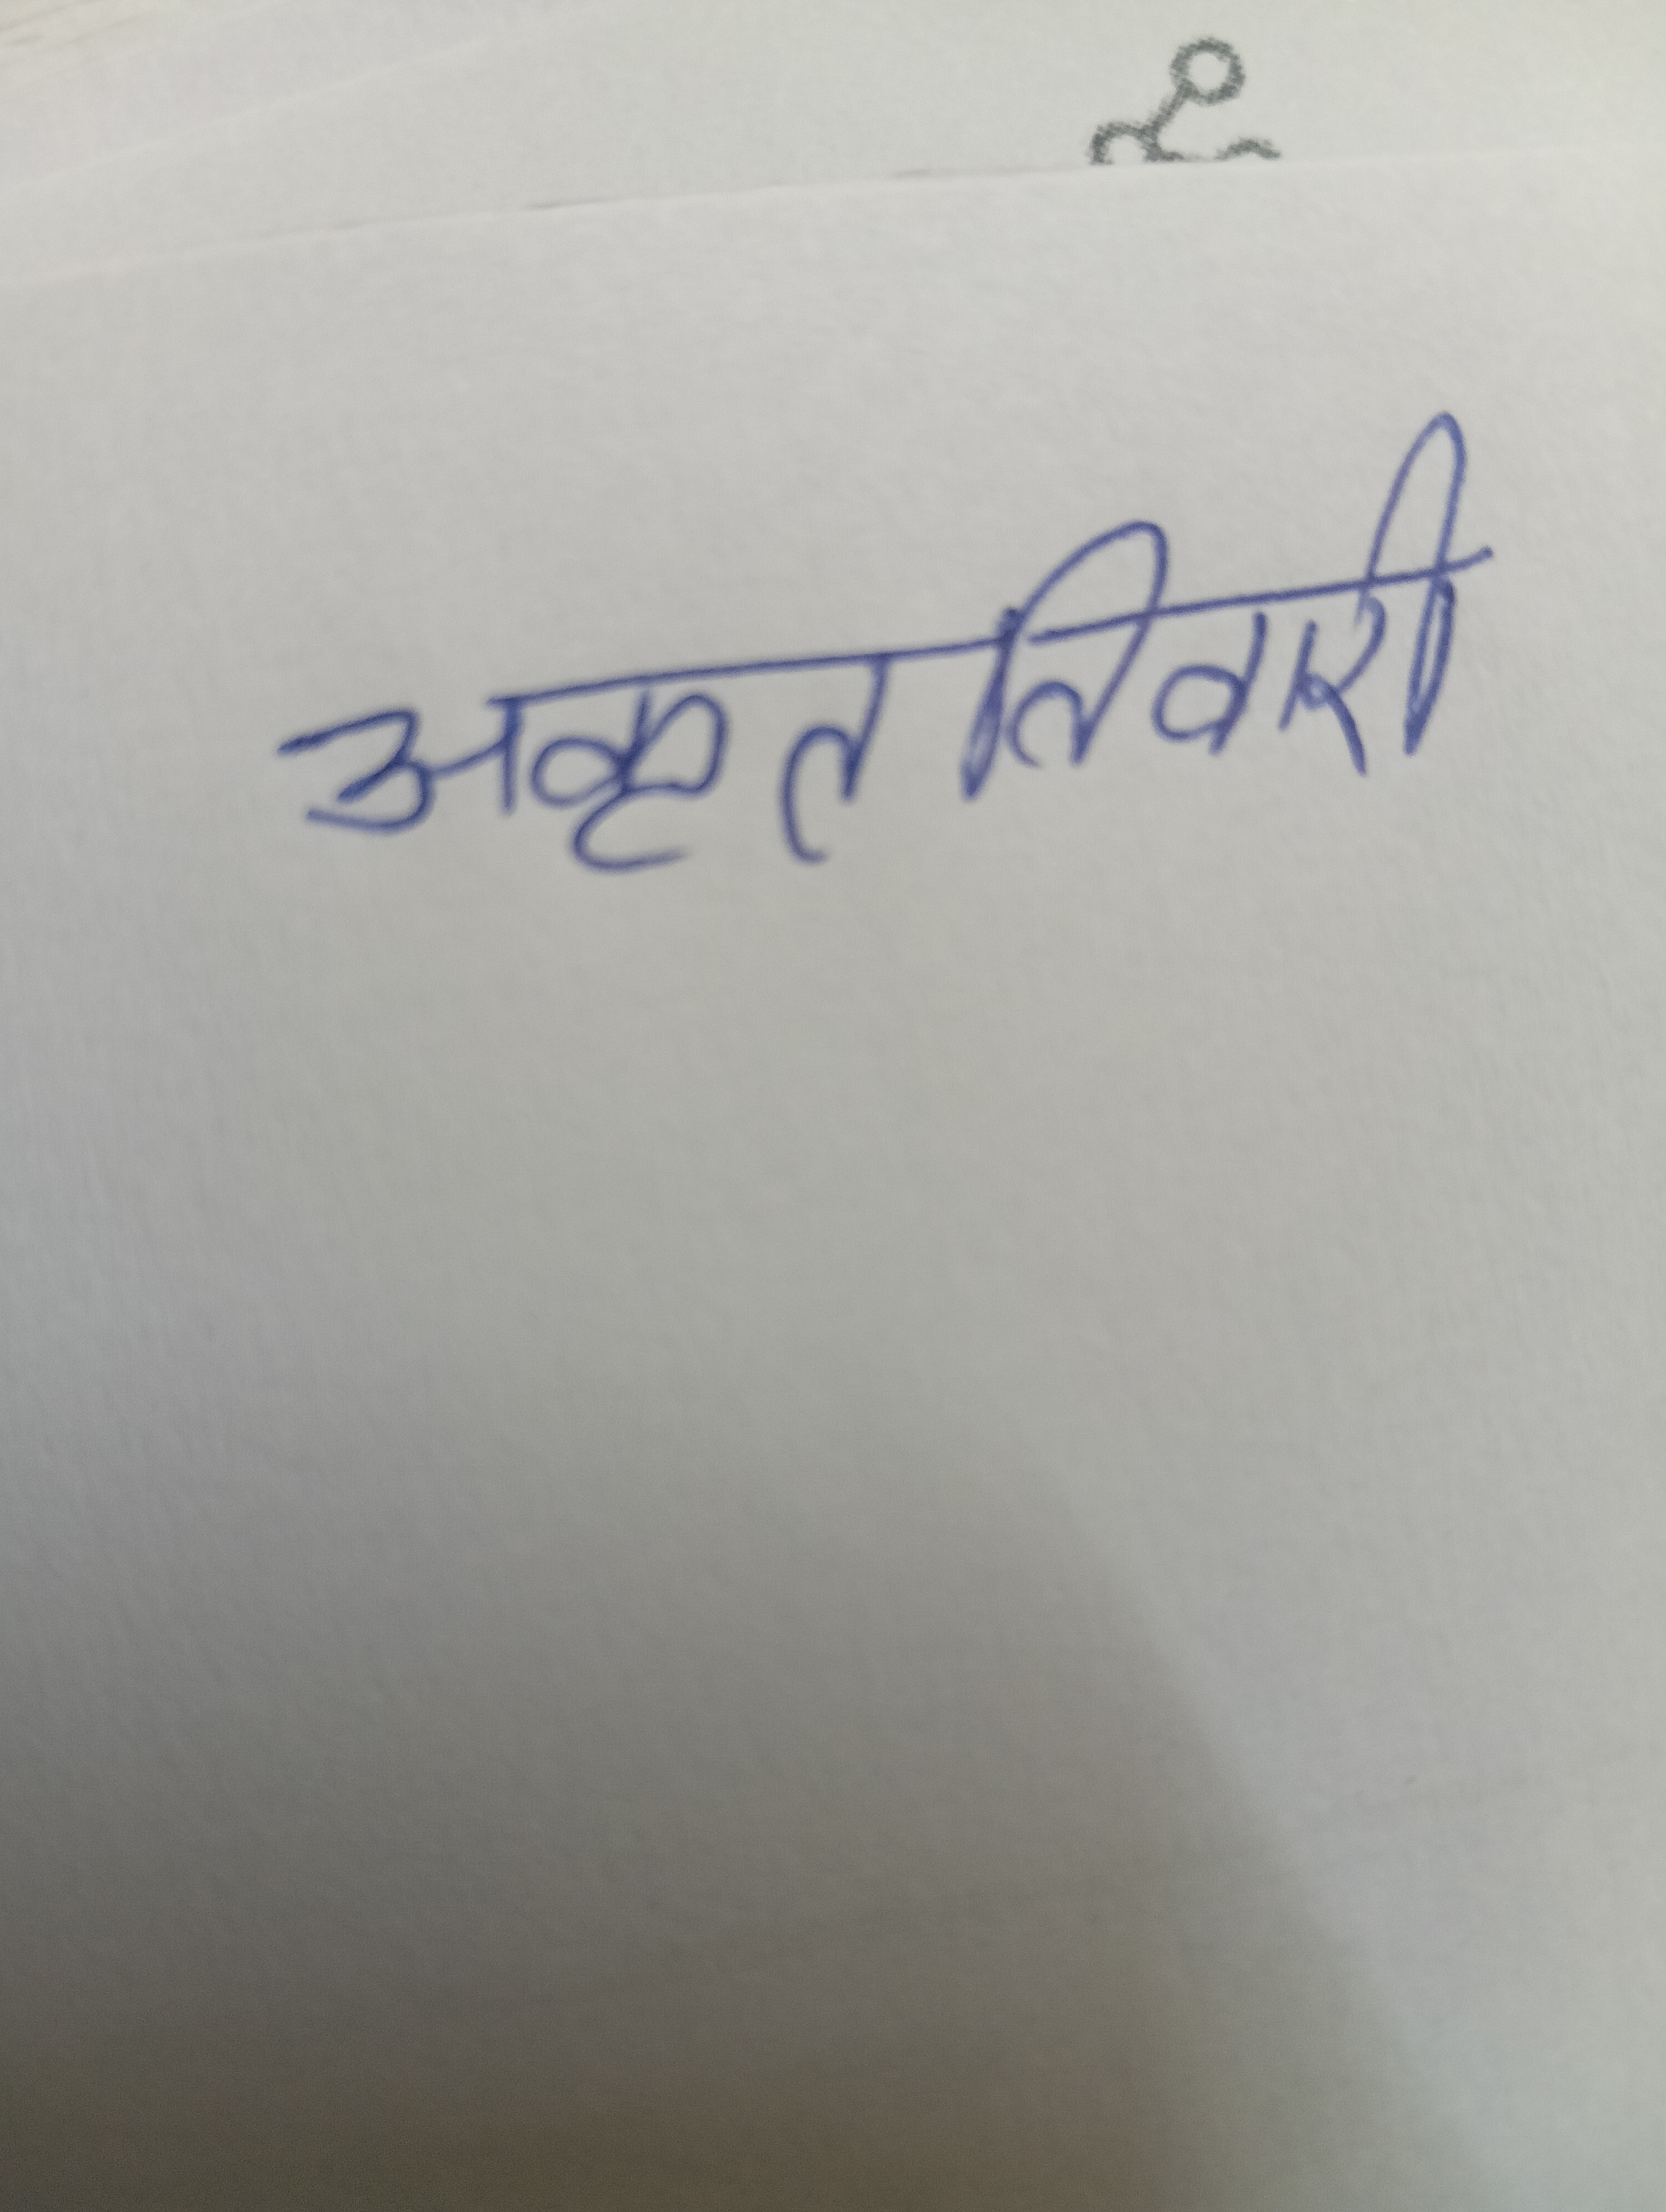 अकृत तिवारी